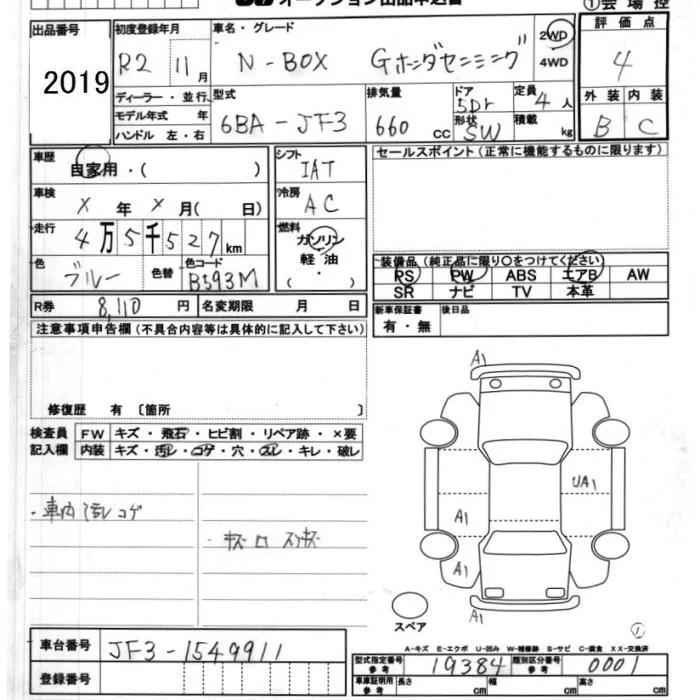 オークション出品申込書
①会場控
出品番号
2019
初度登録年月
R2 11月
車名・グレード
N-BOX Gホンダセンシング
2WD
4WD
評価点
4
外装 内装
B C
ディーラー・並行
モデル年式 年
ハンドル 左・右
型式
6BA-JF3
排気量
660 cc
ドア
5Dr
形状
SW
定員
4人
積載
kg
車歴
自家用・( )
車検
X年X月( 日)
走行
4万5千527km
色
ブルー
色替
色コード
B593M
シフト
IAT
冷房
AC
燃料
ガソリン
軽油
( ・ )
セールスポイント(正常に機能するものに限ります)
装備品(純正品に限り○をつけてください)
PS PW ABS エアB AW
SR ナビ TV 本革
R券 8,110円 名変期限 月 日
新車保証書
有・無
後日品
注意事項申告欄(不具合内容等は具体的に記入して下さい)
修復歴 有 [箇所 ]
検査員
記入欄
FW キズ・飛石・ヒビ割・リペア跡・×要
内装 キズ・汚レ・コゲ・穴・スレ・キレ・破レ
・車内汚レコゲ
・キズロ スリキズ
A1
UA1
A1
A1
A1
スペア
①
A-キズ E-エクボ U-凹み W-補修跡 S-サビ C-腐食 XX-交換済
車台番号
JF3-1549911
登録番号
型式指定番号
参考
19384
類別区分番号
参考
0001
車庫証明用
参考
長さ cm 幅 cm 高さ cm